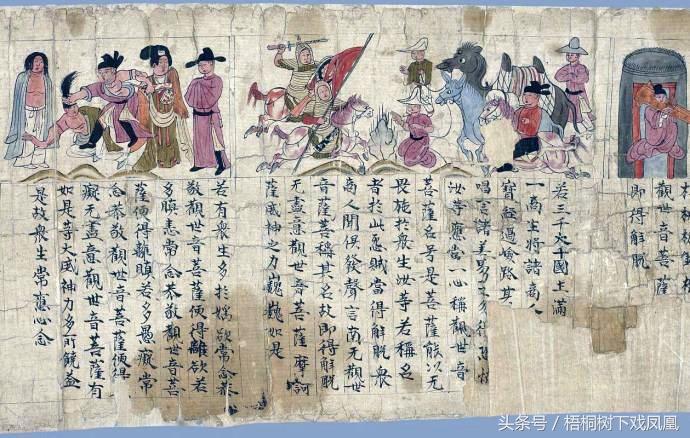 觀世音菩薩
即得解脫
若三千大千國土滿
一商主將諸商人
寶經過嶮路其
唱言諸善男子勿得恐
汝等應當一心稱觀世音
菩薩名号是菩薩能以无
畏施於衆生汝等若稱名
者於此怨賊當得解脫衆
商人聞俱發聲言南无觀世
音菩薩稱其名故即得解脫
无盡意觀世音菩薩摩訶
薩威神之力巍巍如是
若有衆生多於婬欲常念恭
敬觀世音菩薩便得離欲若
多瞋恚常念恭敬觀世音菩
薩便得離瞋若多愚癡常
念恭敬觀世音菩薩便得
癡无盡意觀世音菩薩有
如是等大威神力多所饒益
是故衆生常應心念
头条号 / 梧桐树下戏凤凰